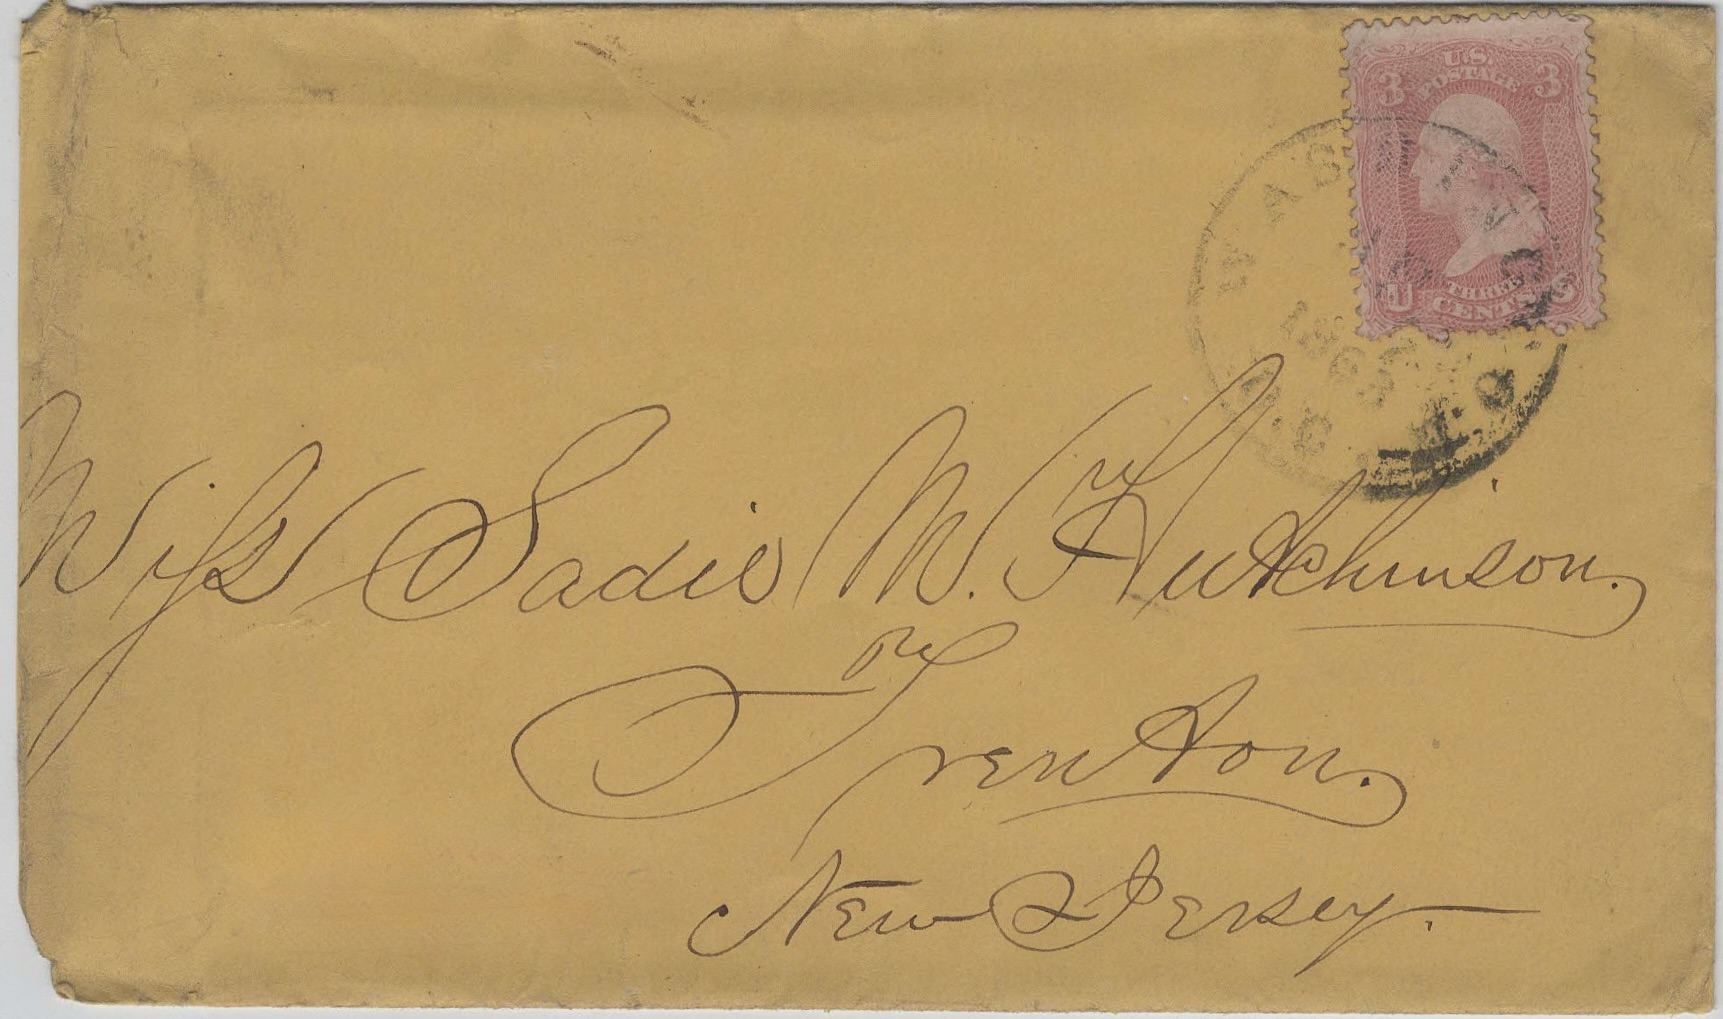 U.S.
POSTAGE
3 3
U S
THREE
CENTS
WASHINGTON
1865
D.C.
Miss Sadie M. Hutchinson.
Trenton.
New Jersey.